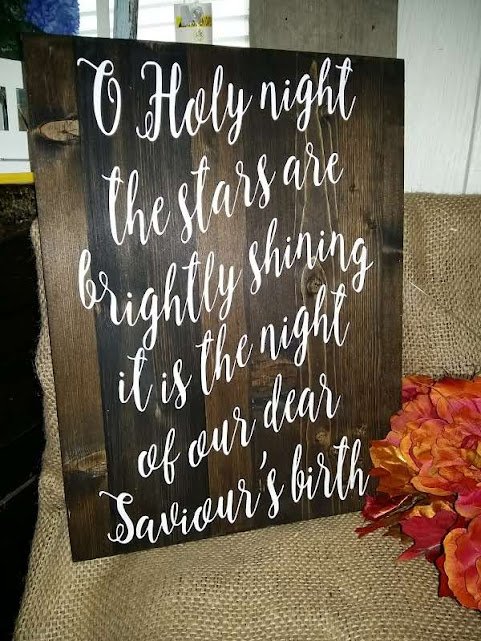 O Holy night
the stars are
brightly shining
it is the night
of our dear
Saviour's birth